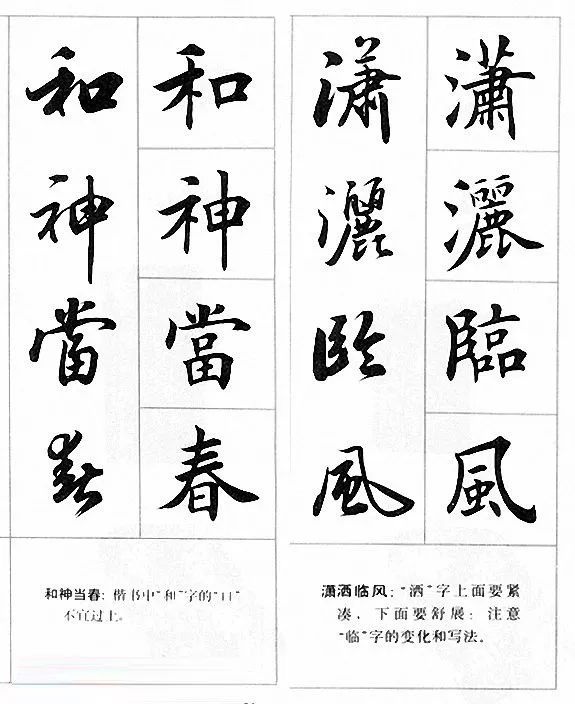 和神當春
和神當春
和神当春：楷书中“和”字的“口”
不宜过上。
瀟灑臨風
瀟灑臨風
潇洒临风：“洒”字上面要紧
凑，下面要舒展；注意
“临”字的变化和写法。